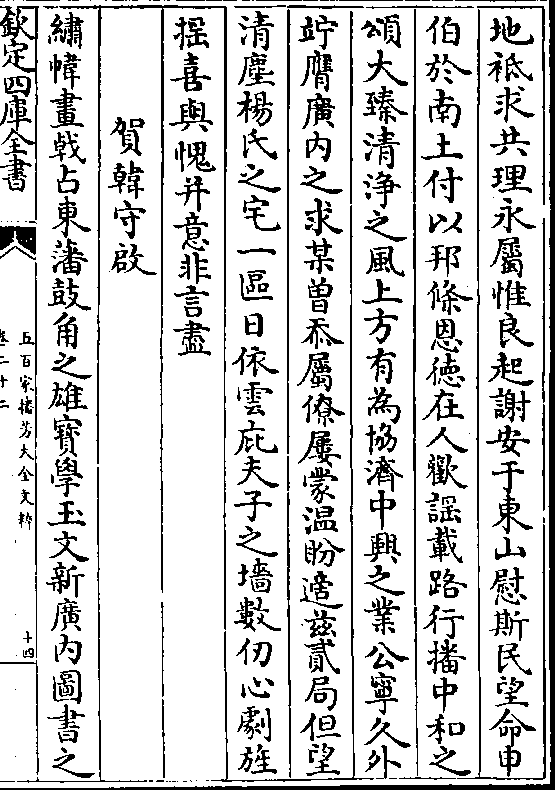 地祇求共理永屬惟良起謝安于東山慰斯民望命申
伯於南土付以邦條恩徳在人歡謡載路行播中和之
頌大臻清浄之風上方有為協濟中興之業公寧久外
竚膺廣内之求某曽忝屬僚屢蒙温盼適兹貳局但望
清塵楊氏之宅一區日依雲庇夫子之墻數仞心劇旌
揺喜與愧并意非言盡
賀韓守啟
繡幃畫㦸占東藩鼓角之雄寳學玉文新廣内圖書之
欽定四庫全書
五百家播芳大全文粹
卷二十二
十四